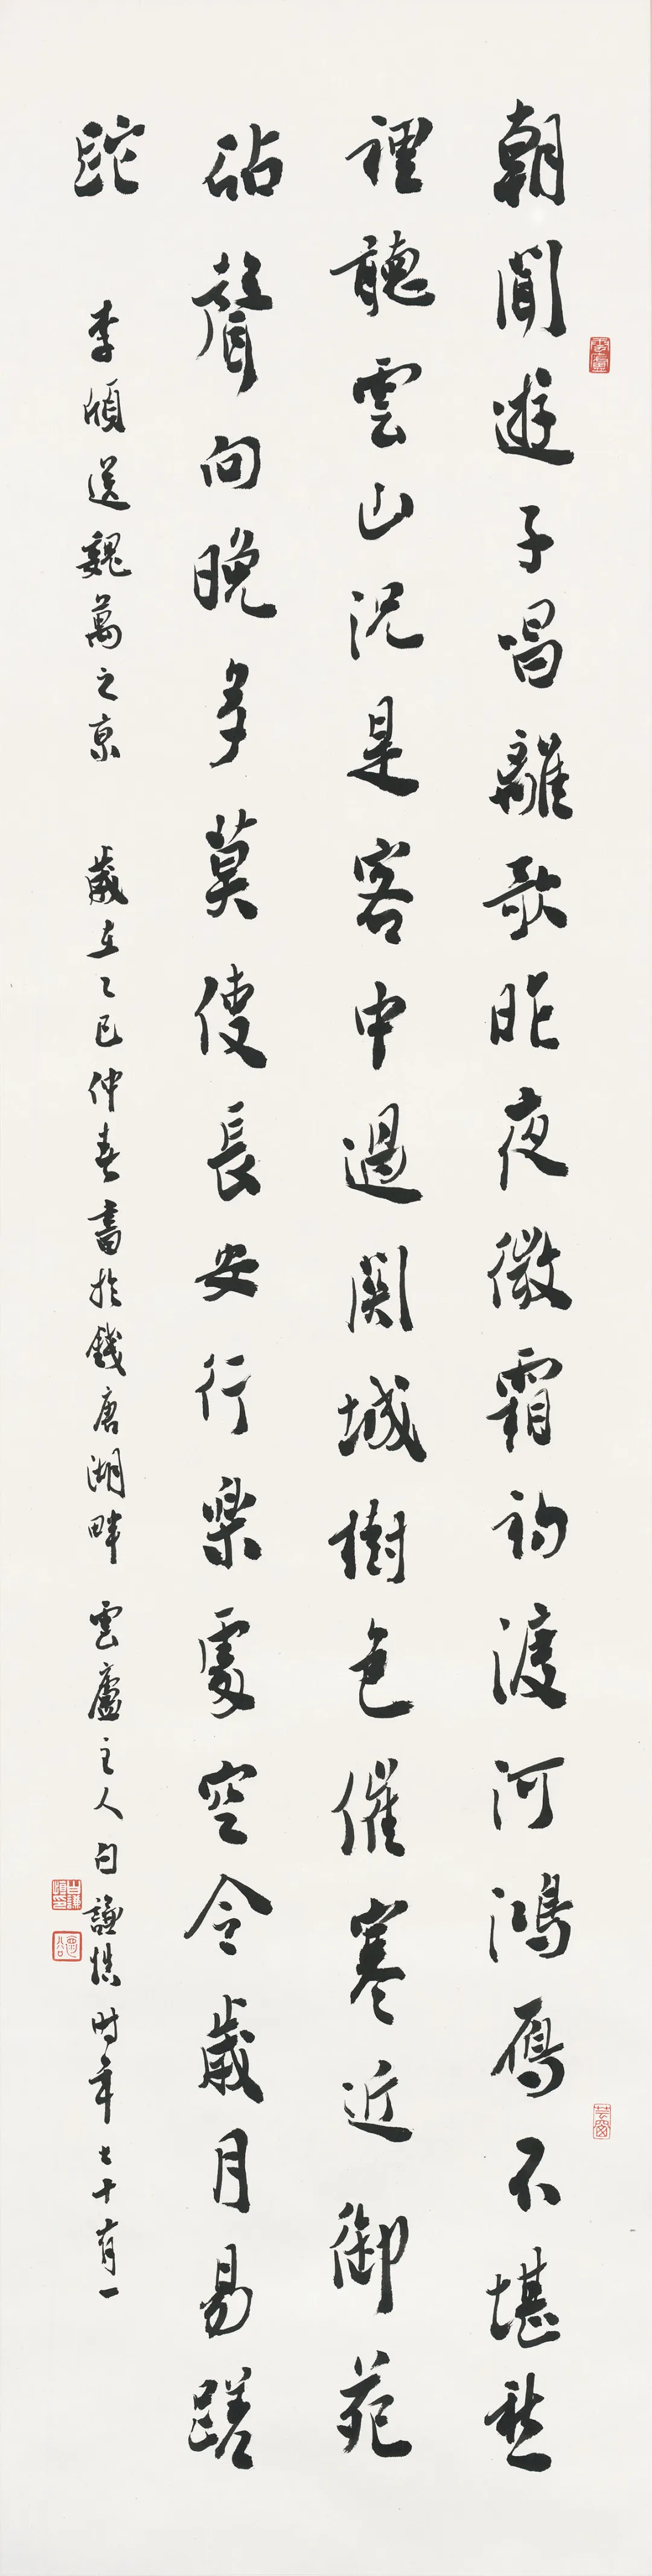 朝聞遊子唱離歌昨夜微霜初渡河鴻雁不堪愁
裡聽雲山況是客中過關城樹色催寒近御苑
砧聲向晚多莫使長安行樂處空令歲月易蹉
跎
李頎送魏萬之京 歲在乙巳仲春書於錢唐湖畔 雲廬主人白謙慎時年七十有一
雲廬
白謙慎印